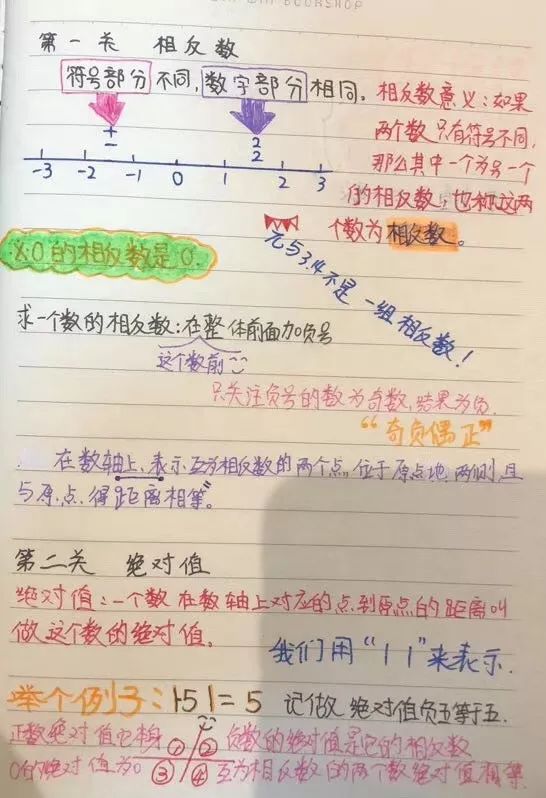 第一关 相反数
符号部分不同,数字部分相同。
相反数意义:如果
两个数只有符号不同,
那么其中一个为另一个
的相反数,也称这两
个数为相反数。
+ 2
- 2
-3 -2 -1 0 1 2 3
※0的相反数是0.
π与3.14不是一组相反数!
求一个数的相反数:在整体前面加负号
这个数前
只关注负号的数为奇数,结果为负.
“奇负偶正”
在数轴上,表示互为相反数的两个点,位于原点地两侧,且
与原点得距离相等。
第二关 绝对值
绝对值:一个数在数轴上对应的点到原点的距离叫
做这个数的绝对值。
我们用“| |”来表示.
举个例子:|-5|=5 记做 绝对值负五等于五.
正数绝对值它本身 ① ② 负数的绝对值是它的相反数
0的绝对值为0 ③ ④ 互为相反数的两个数绝对值相等